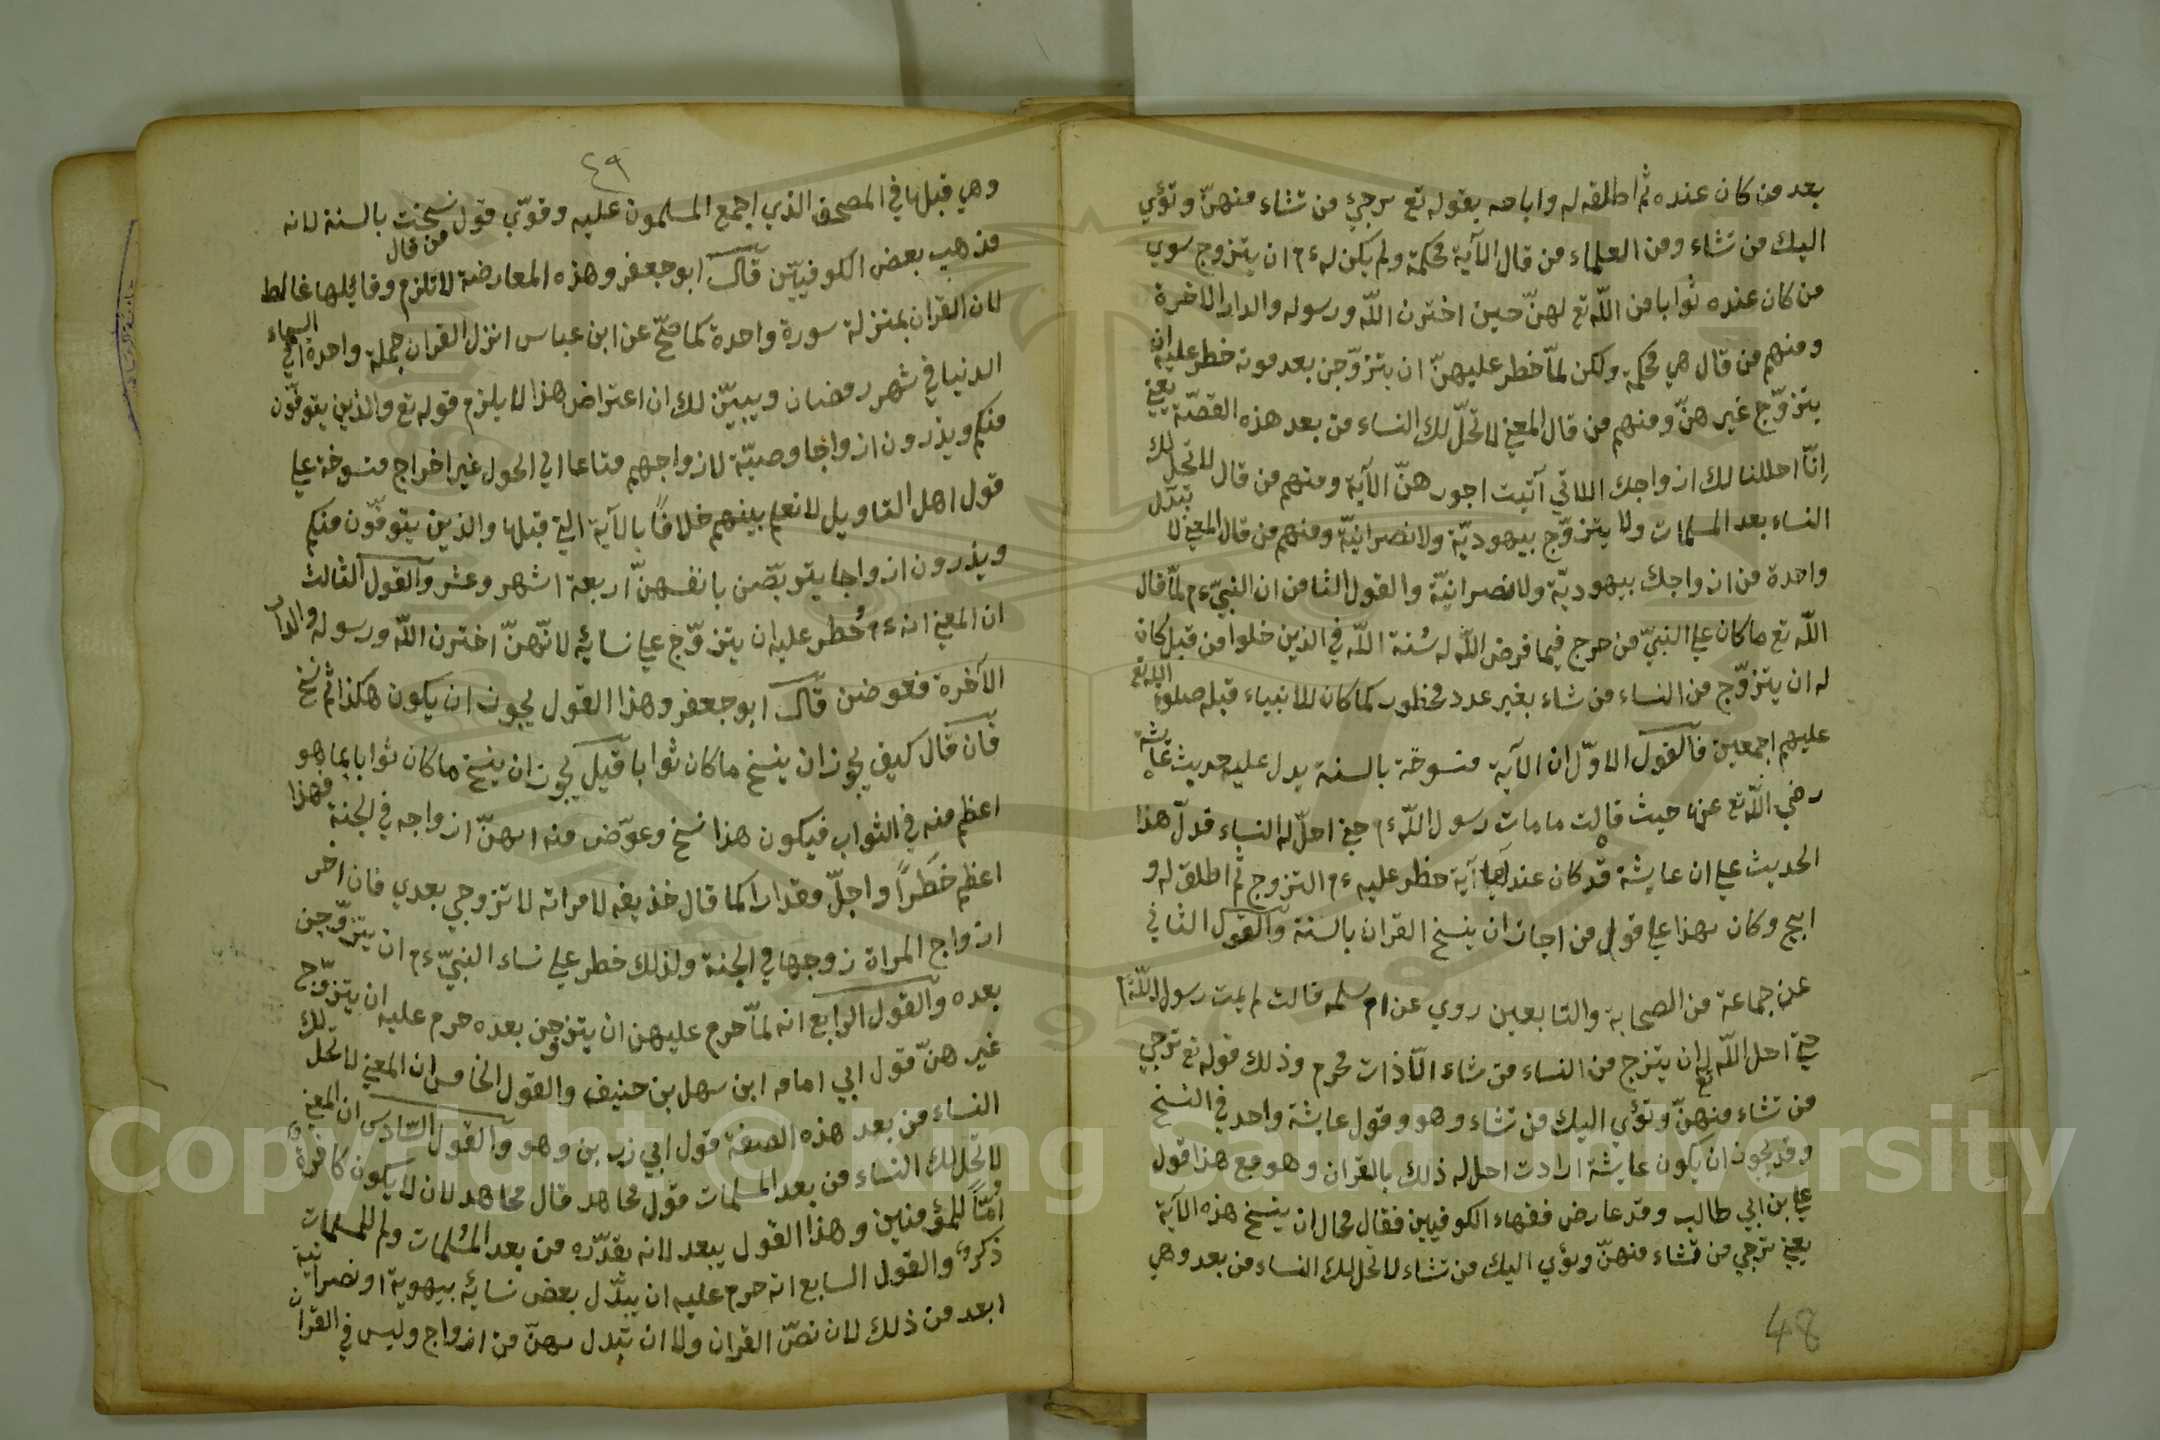 بعد من كان عنده ثم اطلقه له واباحه بقوله تع ترجئ من تشاء منهنّ وتؤي
اليك من تشاء ومن العلماء من قال الآية محكمة ولم يكن له ءم ان يتزوج سوي
من كان عنده ثوابا من اللّه تع لهنّ حين اخترن اللّه ورسوله والدار الاخرة
ومنهم من قال هي محكمة ولكن لمّا خطر عليهنّ ان يتزوّجن بعد موته خطر عليه ان
يتزوّج غيرهنّ ومنهم من قال المعني لا تحلّ لك النساء من بعد هذه القصّة يعني
انّا احللنا لك ازواجك اللاتي آتيت اجورهنّ الآية ومنهم من قال لا تحل لك
النساء بعد المسلمات ولا يتزوّج بيهوديّة ولا نصرانيّة ومنهم من قال المعني لا تبدّل
واحدة من ازواجك بيهوديّة ولا نصرانيّة والقول الثامن ان النبيّ ءم لمّا قال
اللّه تع ما كان علي النبيّ من حرج فيما فرض اللّه له سُنة اللّه في الذين خلوا من قبل كان
له ان يتزوّج من النساء من شاء بغير عدد محظور كما كان للانبياء قبله صلوة اللّه تع
عليهم اجمعين فالقول الاوّل ان الآية منسوخة بالسنة يدل عليه حديث عائشة
رضي اللّه تع عنها حيث قالت ما مات رسول اللّه ءم حتي احلّ له النساء فدلّ هذا
الحديث علي ان عايشة قد كان عندها آية حظر عليه ءم التزوج ثم اطلق له و
ابيح وكان بهذا علي قول من اجاز ان ينسخ القران بالسنة والقول الثاني
عن جماعة من الصحابة والتابعين روي عن ام سلمه قالت لم يمت رسول اللّه ءم
حتي احل اللّه تع له ان يتزوج من النساء من شاء الّا ذات محرم وذلك قوله تع ترجي
من تشاء منهنّ وتؤي اليك من تشاء وهو وقول عايشة واحد في النسخ
وقد يجوز ان يكون عايشة ارادت احل له ذلك بالقران وهو مع هذا قول
علي بن ابي طالب وقد عارض فقهاء الكوفيين فقال محال ان ينسخ هذه الآية
يعني ترجي من تشاء منهنّ وتؤي اليك من تشاء لا تحل لك النساء من بعد وهي
48
٤٩
وهي قبلها في المصحف الذي اجمع المسلمون عليه وقوّي قول من قال نسخت بالسنة لانه
مذهب بعض الكوفيّين قال ابو جعفر وهذه المعارضة لا تلزم وقائلها غالط
لان القران بمنزلة سورة واحدة كما صحّ عن ابن عباس انزل القران جملة واحدة الي السماء
الدنيا في شهر رمضان ويبيّن لك ان اعتراض هذا لا يلزم قوله تع والذين يتوفّون
منكم ويذرون ازواجا وصيّة لازواجهم متاعا الي الحول غير اخراج منسوخة علي
قول اهل التاويل لا نعلم بينهم خلافًا بالآية التي قبلها والذين يتوفّون منكم
ويذرون ازواجا يتربّصن بانفسهنّ اربعة اشهر وعشر والقول الثالث
ان المعني انه ءم حُطر عليه ان يتزوّج علي نسائه لانّهنّ اخترن اللّه ورسوله والدار
الآخرة فعوضن قال ابو جعفر وهذا القول يجوز ان يكون هكذا ثم نسخ
فان قال كيف يجوز ان ينسخ ما كان ثوابا قيل يجوز ان ينسخ ما كان ثوابا بما هو
اعظم منه في الثواب فيكون هذا نسخ وعوّض منه انهنّ ازواجه في الجنة فهذا
اعظم خَطَرًا واجلّ مقدارا كما قال حذيفه لامراته لا تزوجي بعدي فان اخر
ازواج المراة زوجها في الجنة ولذلك خطر علي نساء النبيّ ءم ان يتزوّجن
بعده والقول الرابع انه لمّا حرم عليهن ان يتزوجن بعده حرم عليه ان يتزوّج
غيرهنّ قول ابي امامه ابن سهل بن حنيف والقول الخامس ان المعني لا تحل لك
النساء من بعد هذه الصفة قول ابي زر بن وهو والقول السّادس ان المعني
لا تحل لك النساء من بعد المسلمات قول مجاهد قال مجاهد لان لا يكون كافرة
امّا للمؤمنين وهذا القول يبعد لانه يقدّره من بعد المُسلمات ولم للمسلمات
ذكر والقول السابع انه حرم عليه ان يبدّل بعض نسائه بيهوية او نصرانية
ابعد من ذلك لان نصّ القران ولا ان تبدل بهنّ من ازواج وليس في القران
Copyright © King Saud University